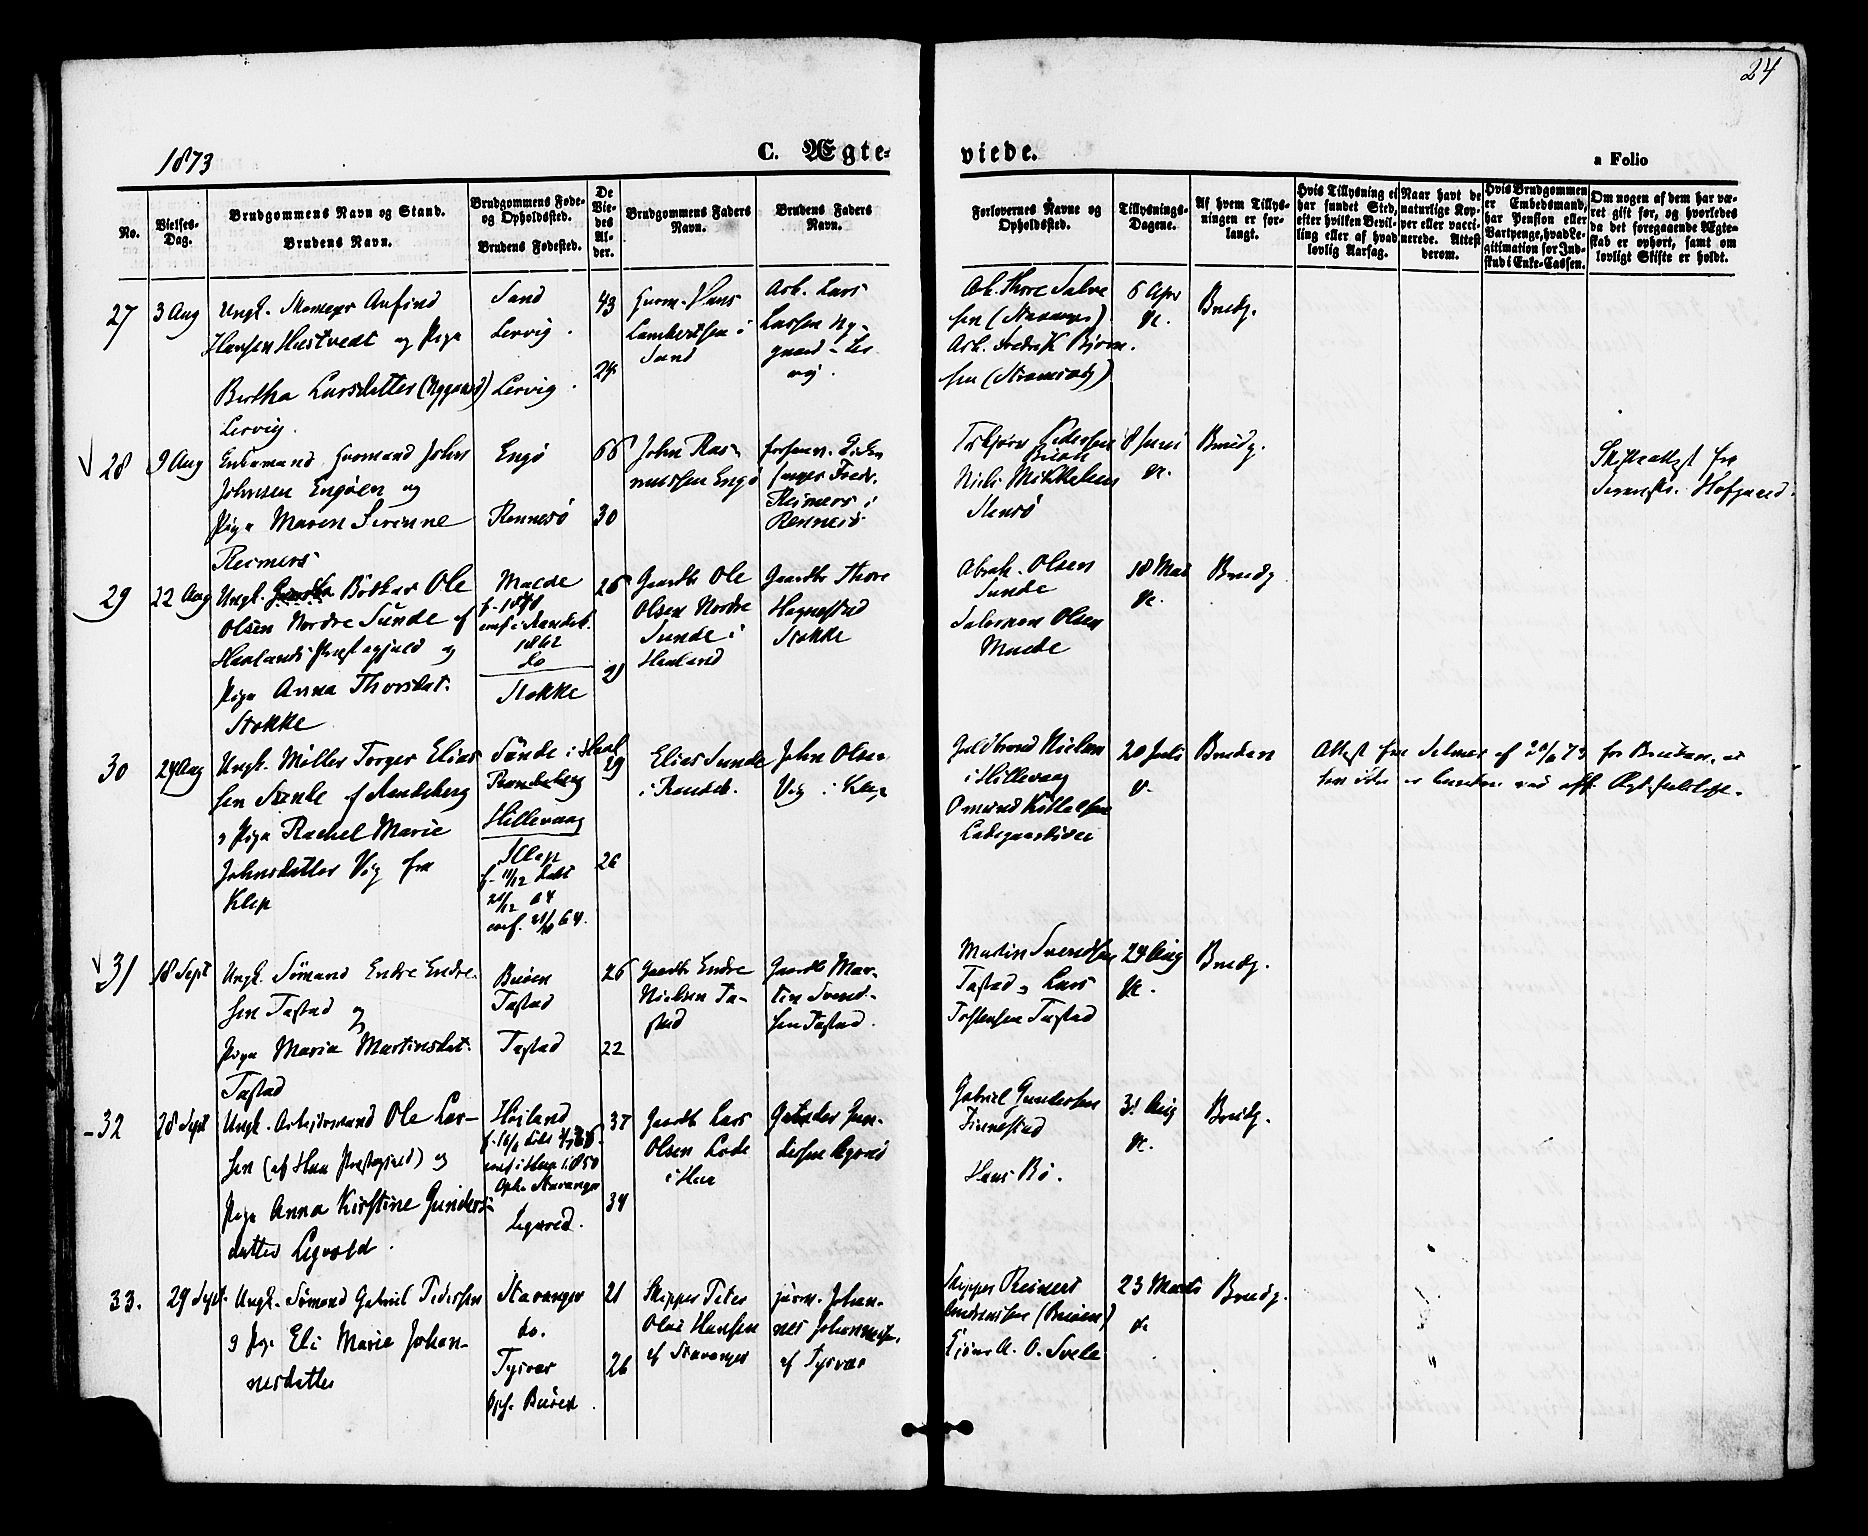 24
1873
C. Ægte-
viede.
a Folio
No.
Vielses-
Dag.
Brudgommens Navn og Stand.
Brudens Navn.
Brudgommens Føde-
og Opholdssted.
Brudens Fødested.
De
Vie-
des
Al-
der.
Brudgommens Faders
Navn.
Brudens Faders
Navn.
Forlovernes Navne og
Opholdssted.
Tillysnings-
Dagene.
Af hvem Tillys-
ningen er for-
langt.
Hvis Tillysning ei
har fundet Sted,
efter hvilken Bevil-
ling eller af hvad
lovlig Aarsag.
Naar havt de
naturlige Kop-
per eller vacci-
nerede. Attest
derom.
Hvis Brudgommen
er Embedsmand,
har Pension eller
Vartpenge, hvad Le-
gitimation for Ind-
skud i Enke-Cassen.
Om nogen af dem har væ-
ret gift før, og hvorledes
da det foregaaende Ægte-
skab er ophørt, samt om
lovligt Skifte er holdt.
27
3 Aug
Ungk. Anfind
Hansen Hustvedt og Pige
Bertha Larsdatter (Nygaard)
Lervig.
Sand
Lervig.
Lervig.
43
24
Huusm. Hans
Lambertsen i
Sand
Arb. Lars
Larsen Ny-
gaard - Ler-
vig.
Arb. Thore Salve
sen
Arb. Fredrik Bjørn-
sen
6 Apr
&c.
Brudg.
28
9 Aug
Enkemand Huusmand John
Johnsen Engøen og
Pige Maren Serinne
Reimers
Engø
Rennesø
66
30
John Ras-
mussen Engø
Fredr.
Reimers i
Rennesø
Torbjørn Pedersen
Buøen
Niels Mikkelsen
Steinsø
8 Juni
&c.
Brudg.
Skifteattest fra
Hofgaard.
29
22 Aug
Ungk. Bødker Ole
Olsen Nordre Sunde af
Haalands Præstegjeld og
Pige Anna Thorsdat.
Stokke
Maede
conf. i Randeb.
1862
do
Stokke
26
29
Gaardbr. Ole
Olsen Nordre
Sunde i
Haaland
Gaardbr. Thore
Hognestad
Stokke
Abrah. Olsen
Sunde
Salomon Olsen
Maede
18 Mai
&c.
Brudg
30
24 Aug
Ungk. Møller Torger Elias
sen Sunde af Randeberg
og Pige Rachel Marie
Johnsdatter Vig fra
Klep
Sunde i Haal
Randeberg
Hillevaag
Klep
f. 11/12
conf. 64.
29
26
Elias Sunde
i Randeb.
John Olsen
Vig i Klep
Guldbrand Nielsen
i Hillevaag
Omund Kittelsen
Ladegaardsveien
20 Juli
&c.
Bruden
Attest fra af for Bruden, at
hun ikke er bunden ved Ægteskabsløfte.
31
18 Sept
Ungk. Sømand Endre Endre-
sen Tastad og
Pige Maria Martinsdat.
Tastad
Buøen
Tastad
Tastad
26
22
Gaardbr. Endre
Nielsen Ta-
stad
Gaardbr. Mar-
tin Svend-
sen Tastad.
Martin Svendsen
Tastad og Lars
Torstensen Tastad
24 Aug
&c.
Brudg.
32
28 Sept
Ungk. Arbeidsmand Ole Lar-
sen (af Haa Præstegjeld) og
Pige Anna Kirstine Gunders-
datter Legvold.
Høiland
conf. i Haa 1850
Oph. Stavanger
37
34
Gaardbr. Lars
Olsen Lode
i Haa
Gun-
dersen
Gabriel Gundersen
Finnestad
Hans Bø.
31 Aug
&c.
Brudg.
33.
29 Sept.
Ungk. Sømand Gabriel Pedersen
og Pige Eli Marie Johan-
nesdatter
Stavanger
do.
Tysvær
Oph. Buøen
21
26
Skipper Peter
Olai Hansen
af Stavanger
Huusm. Johan-
nes Johannessen
af Tysvær
Skipper Reinert
Andreassen (Buøen)
A. O. Svele
23 Marts
&c
Brudg.